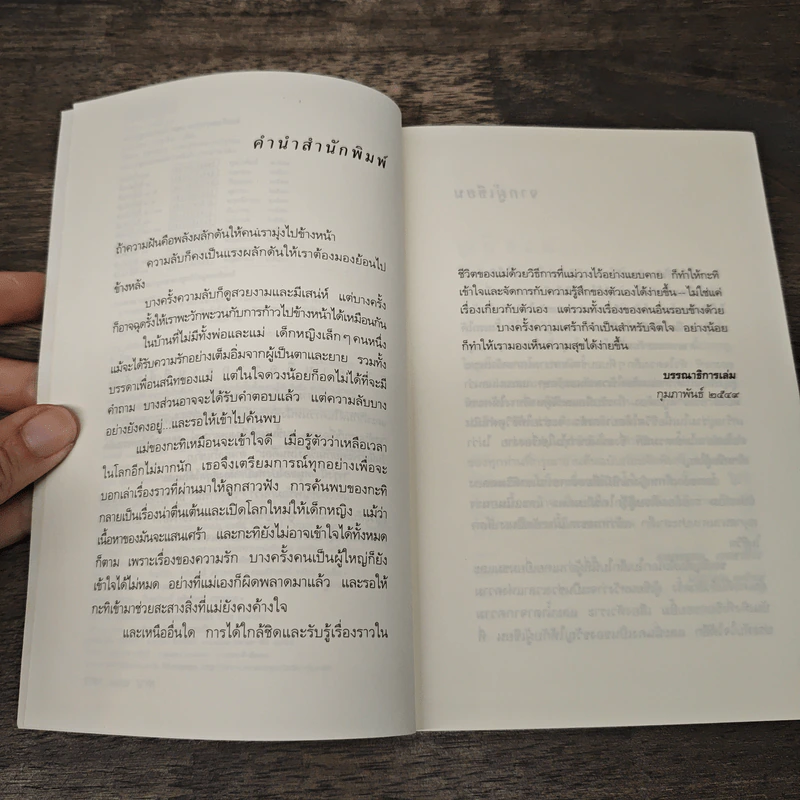 คำนำสำนักพิมพ์
ถ้าความฝันคือพลังผลักดันให้คนเรามุ่งไปข้างหน้า
ความลับก็คงเป็นแรงผลักดันให้เราต้องมองย้อนไป
ข้างหลัง
บางครั้งความลับก็ดูสวยงามและมีเสน่ห์ แต่บางครั้ง
ก็อาจฉุดรั้งให้เราพะวักพะวนกับการก้าวไปข้างหน้าได้เหมือนกัน
ในบ้านที่ไม่มีทั้งพ่อและแม่ เด็กหญิงเล็กๆ คนหนึ่ง
แม้จะได้รับความรักอย่างเต็มอิ่มจากผู้เป็นตาและยาย รวมทั้ง
บรรดาเพื่อนสนิทของแม่ แต่ในใจดวงน้อยก็อดไม่ได้ที่จะมี
คำถาม บางส่วนอาจจะได้รับคำตอบแล้ว แต่ความลับบาง
อย่างยังคงอยู่...และรอให้เข้าไปค้นพบ
แม่ของกะทิเหมือนจะเข้าใจดี เมื่อรู้ตัวว่าเหลือเวลา
ในโลกอีกไม่มากนัก เธอจึงเตรียมการณ์ทุกอย่างเพื่อจะ
บอกเล่าเรื่องราวที่ผ่านมาให้ลูกสาวฟัง การค้นพบของกะทิ
กลายเป็นเรื่องน่าตื่นเต้นและเปิดโลกใหม่ให้เด็กหญิง แม้ว่า
เนื้อหาของมันจะแสนเศร้า และกะทิยังไม่อาจเข้าใจได้ทั้งหมด
ก็ตาม เพราะเรื่องของความรัก บางครั้งคนเป็นผู้ใหญ่ก็ยัง
เข้าใจได้ไม่หมด อย่างที่แม่เองก็ผิดพลาดมาแล้ว และรอให้
กะทิเข้ามาช่วยสะสางสิ่งที่แม่ยังคงค้างใจ
และเหนืออื่นใด การได้ใกล้ชิดและรับรู้เรื่องราวใน
ชีวิตของแม่ด้วยวิธีการที่แม่วางไว้อย่างแยบคาย ก็ทำให้กะทิ
เข้าใจและจัดการกับความรู้สึกของตัวเองได้ง่ายขึ้น—ไม่ใช่แค่
เรื่องเกี่ยวกับตัวเอง แต่รวมทั้งเรื่องของคนอื่นรอบข้างด้วย
บางครั้งความเศร้าก็จำเป็นสำหรับจิตใจ อย่างน้อย
ก็ทำให้เรามองเห็นความสุขได้ง่ายขึ้น
บรรณาธิการเล่ม
กุมภาพันธ์ ๒๕๔๙